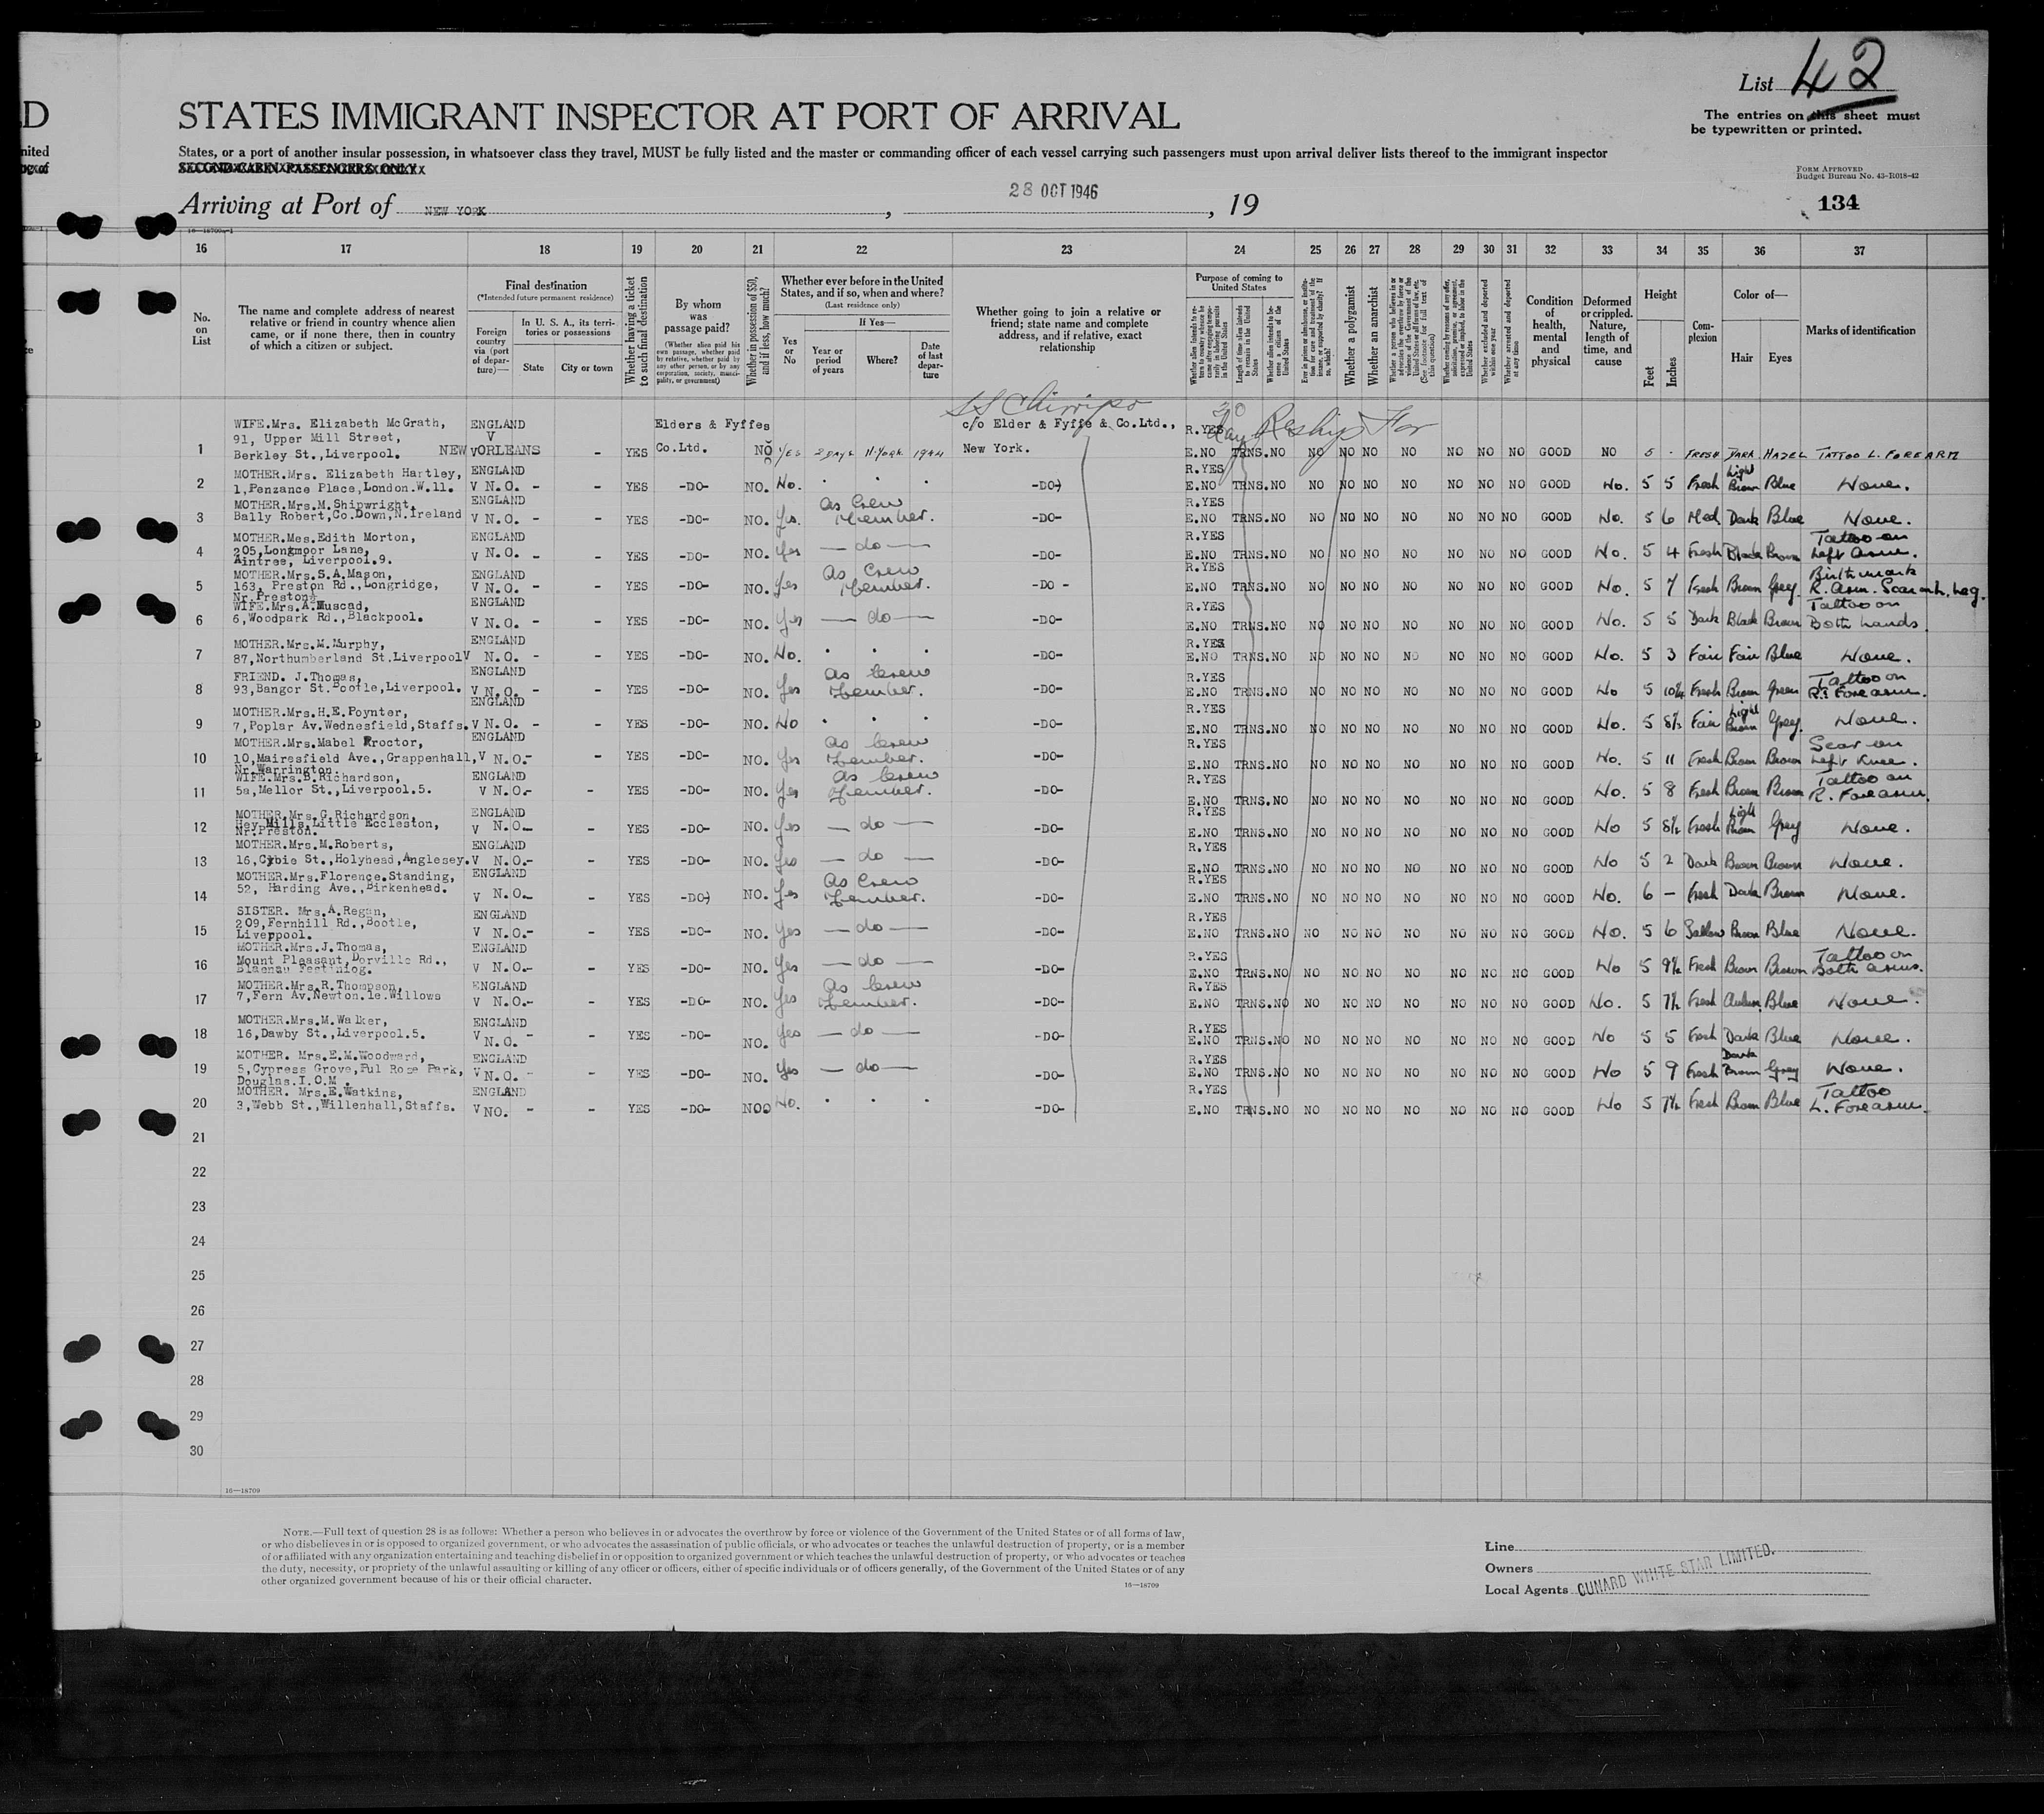 D
List 42
STATES IMMIGRANT INSPECTOR AT PORT OF ARRIVAL
The entries on this sheet must
be typewritten or printed.
nited
States, or a port of another insular possession, in whatsoever class they travel, MUST be fully listed and the master or commanding officer of each vessel carrying such passengers must upon arrival deliver lists thereof to the immigrant inspector
SECOND-CABIN PASSENGERS ONLY
FORM APPROVED
Budget Bureau No. 43-R018-42
Arriving at Port of NEW YORK, 28 OCT 1946, 19
134
16 17 18 19 20 21 22 23 24 25 26 27 28 29 30 31 32 33 34 35 36 37
No. on List
The name and complete address of nearest relative or friend in country whence alien came, or if none there, then in country of which a citizen or subject.
Final destination
(*Intended future permanent residence)
Foreign country via (port of departure)—
In U. S. A., its territories or possessions
State
City or town
Whether having a ticket to such final destination
By whom was passage paid?
(Whether alien paid his own passage, whether paid by relative, whether paid by any other person, or by any corporation, society, municipality, or government)
Whether in possession of $50, and if less, how much?
Whether ever before in the United States, and if so, when and where?
(Last residence only)
Yes or No
If Yes—
Year or period of years
Where?
Date of last departure
Whether going to join a relative or friend; state name and complete address, and if relative, exact relationship
Purpose of coming to United States
Length of time alien intends to remain in the United States
Whether alien intends to become a citizen of the United States
Whether a polygamist
Whether an anarchist
Whether excluded and deported within one year
Whether arrested and deported at any time
Condition of health, mental and physical
Deformed or crippled. Nature, length of time, and cause
Height
Feet
Inches
Complexion
Color of—
Hair
Eyes
Marks of identification
SS Chirripo
30 day Reship For
WIFE.Mrs. Elizabeth McGrath, ENGLAND Elders & Fyffes c/o Elder & Fyffe & Co.Ltd., R.YES
91, Upper Mill Street, V
1 Berkley St.,Liverpool. NEW ORLEANS - YES Co.Ltd. NO YES 2 DAYS N.YORK 1944 New York. E.NO TRNS.NO NO NO NO NO NO NO NO GOOD NO 5 - FRESH DARK HAZEL TATTOO L. FOREARM
MOTHER.Mrs. Elizabeth Hartley, ENGLAND R.YES
2 1,Penzance Place,London.W.11. V N.O. - - YES -DO- NO. No. -DO- E.NO TRNS.NO NO NO NO NO NO NO NO GOOD No. 5 5 Fresh Light Brown Blue None.
MOTHER.Mrs.M.Shipwright, ENGLAND As Crew R.YES
3 Bally Robert,Co.Down,N.Ireland V N.O. - - YES -DO- NO. Yes. Member. -DO- E.NO TRNS.NO NO NO NO NO NO NO NO GOOD No. 5 6 Med. Dark Blue None.
MOTHER.Mes.Edith Morton, ENGLAND R.YES Tattoo on
4 205,Longmoor Lane, V N.O. - - YES -DO- NO. Yes — do — -DO- E.NO TRNS.NO NO NO NO NO NO NO NO GOOD No. 5 4 Fresh Black Brown Left Arm.
Aintree, Liverpool.9.
MOTHER.Mrs.S.A.Mason, ENGLAND As Crew R.YES Birthmark
5 163, Preston Rd.,Longridge, V N.O. - - YES -DO- NO. Yes Member. -DO- E.NO TRNS.NO NO NO NO NO NO NO NO GOOD No. 5 7 Fresh Brown Grey. R. Arm. Scar on L. Leg.
Nr.Preston.
WIFE.Mrs.A.Muscad, ENGLAND R.YES Tattoo on
6 6,Woodpark Rd.,Blackpool. V N.O. - - YES -DO- NO. Yes — do — -DO- E.NO TRNS.NO NO NO NO NO NO NO NO GOOD No. 5 5 Dark Black Brown Both hands
MOTHER.Mrs.M.Murphy, ENGLAND R.YES
7 87,Northumberland St.Liverpool V N.O. - - YES -DO- NO. No. -DO- E.NO TRNS.NO NO NO NO NO NO NO NO GOOD No. 5 3 Fair Fair Blue None.
FRIEND. J.Thomas, ENGLAND As Crew R.YES Tattoo on
8 93,Bangor St.Bootle,Liverpool. V N.O. - - YES -DO- NO. Yes Member. -DO- E.NO TRNS.NO NO NO NO NO NO NO NO GOOD No 5 10¼ Fresh Brown Green Rt Forearm.
MOTHER.Mrs.H.E.Poynter, ENGLAND R.YES
9 7,Poplar Av.Wednesfield,Staffs. V N.O. - - YES -DO- NO. No -DO- E.NO TRNS.NO NO NO NO NO NO NO NO GOOD No. 5 8½ Fair Light Brown Grey. None.
MOTHER.Mrs.Mabel Proctor, ENGLAND As Crew R.YES Scar on
10 10,Mairesfield Ave.,Grappenhall, V N.O.- - YES -DO- NO. Yes Member. -DO- E.NO TRNS.NO NO NO NO NO NO NO NO GOOD No. 5 11 Fresh Brown Brown Left Knee.
Nr.Warrington.
WIFE.Mrs.B.Richardson, ENGLAND As Crew R.YES Tattoo on
11 5a,Mellor St.,Liverpool.5. V N.O.- - YES -DO- NO. Yes Member. -DO- E.NO TRNS.NO NO NO NO NO NO NO NO GOOD No. 5 8 Fresh Brown Brown R. Forearm.
MOTHER.Mrs.G.Richardson, ENGLAND R.YES
12 Hey Mills,Little Eccleston, V N.O.- - YES -DO- NO. Yes — do — -DO- E.NO TRNS.NO NO NO NO NO NO NO NO GOOD No 5 8½ Fresh Light Brown Grey None.
Nr.Preston.
MOTHER.Mrs.M.Roberts, ENGLAND R.YES
13 16,Cybie St.,Holyhead,Anglesey. V N.O.- - YES -DO- NO. Yes — do — -DO- E.NO TRNS.NO NO NO NO NO NO NO NO GOOD No 5 2 Dark Brown Brown None.
MOTHER.Mrs.Florence.Standing, ENGLAND As Crew R.YES
14 52, Harding Ave.,Birkenhead. V N.O.- - YES -DO- NO. Yes Member. -DO- E.NO TRNS.NO NO NO NO NO NO NO NO GOOD No. 6 - Fresh Dark Brown None.
SISTER. Mrs.A.Regan, ENGLAND R.YES
15 209,Fernhill Rd.,Bootle, V N.O.- - YES -DO- NO. Yes — do — -DO- E.NO TRNS.NO NO NO NO NO NO NO NO GOOD No. 5 6 Sallow Brown Blue None.
Liverpool.
MOTHER.Mrs.J.Thomas, ENGLAND R.YES Tattoo on
16 Mount Pleasant,Dorville Rd., V N.O.- - YES -DO- NO. Yes — do — -DO- E.NO TRNS.NO NO NO NO NO NO NO NO GOOD No 5 9½ Fresh Brown Brown Both arms.
Blaenau Festiniog.
MOTHER.Mrs.R.Thompson, ENGLAND As Crew R.YES
17 7,Fern Av.Newton.le.Willows V N.O.- - YES -DO- NO. Yes Member. -DO- E.NO TRNS.NO NO NO NO NO NO NO NO GOOD No. 5 7½ Fresh Auburn Blue None.
MOTHER.Mrs.M.Walker, ENGLAND R.YES
18 16,Dawby St.,Liverpool.5. V N.O. - - YES -DO- NO. Yes — do — -DO- E.NO TRNS.NO NO NO NO NO NO NO NO GOOD No 5 5 Fresh Dark Blue None.
MOTHER. Mrs.E.M.Woodward, ENGLAND R.YES
19 5,Cypress Grove,Pul Rose Park, V N.O. - - YES -DO- NO. Yes — do — -DO- E.NO TRNS.NO NO NO NO NO NO NO NO GOOD No 5 9 Fresh Dark Brown Grey None.
Douglas.I.O.M.
MOTHER. Mrs.E.Watkins, ENGLAND R.YES Tattoo
20 3,Webb St.,Willenhall,Staffs. V NO. - - YES -DO- NO No. -DO- E.NO TRNS.NO NO NO NO NO NO NO NO GOOD No 5 7½ Fresh Brown Blue L. Forearm.
21
22
23
24
25
26
27
28
29
30
16—18709
NOTE.—Full text of question 28 is as follows: Whether a person who believes in or advocates the overthrow by force or violence of the Government of the United States or of all forms of law,
or who disbelieves in or is opposed to organized government, or who advocates the assassination of public officials, or who advocates or teaches the unlawful destruction of property, or is a member
of or affiliated with any organization entertaining and teaching disbelief in or opposition to organized government or which teaches the unlawful destruction of property, or who advocates or teaches
the duty, necessity, or propriety of the unlawful assaulting or killing of any officer or officers, either of specific individuals or of officers generally, of the Government of the United States or of any
other organized government because of his or their official character.
16—18709
Line
Owners
Local Agents CUNARD WHITE STAR LIMITED.